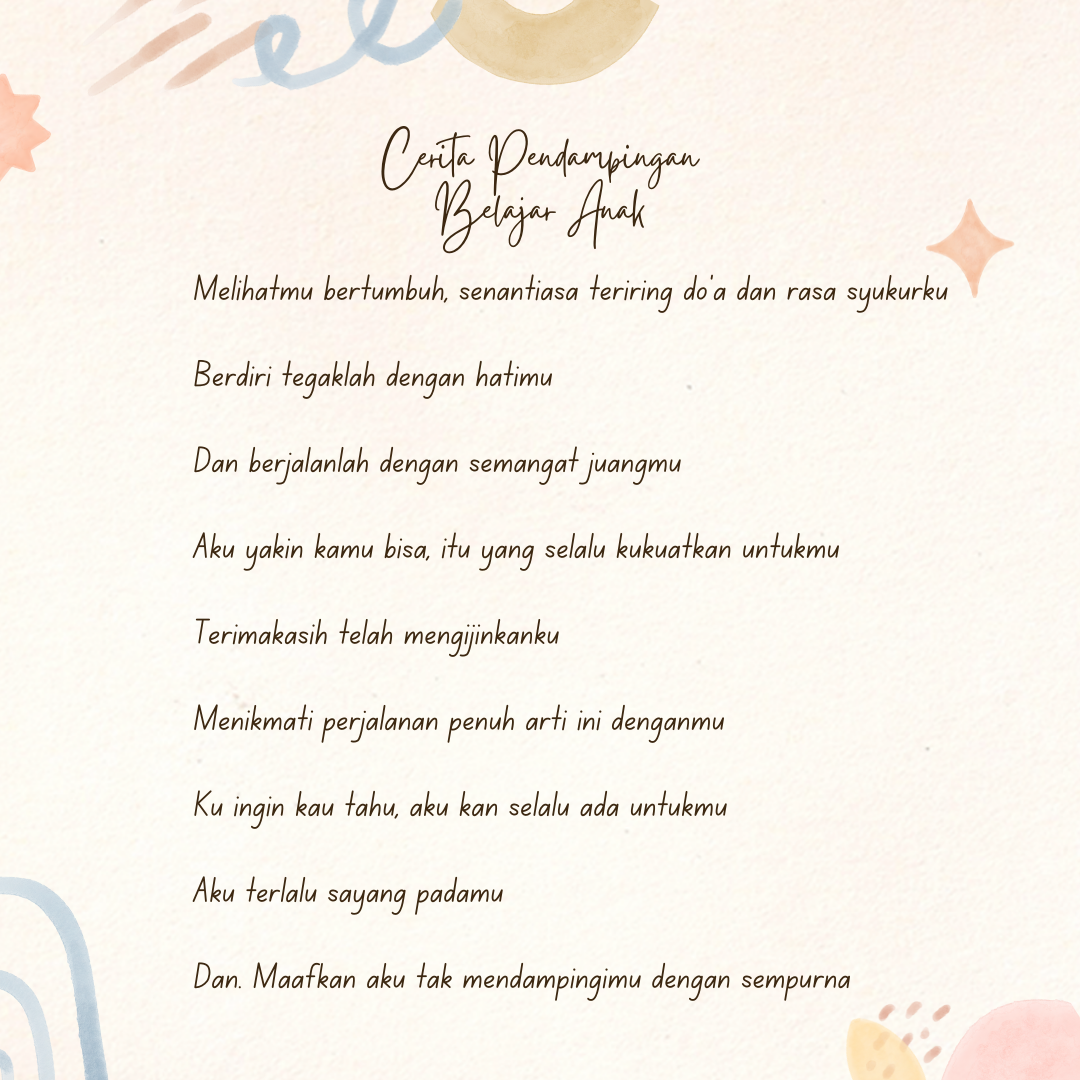 Cerita Pendampingan
Belajar Anak
Melihatmu bertumbuh, senantiasa teriring do'a dan rasa syukurku
Berdiri tegaklah dengan hatimu
Dan berjalanlah dengan semangat juangmu
Aku yakin kamu bisa, itu yang selalu kukuatkan untukmu
Terimakasih telah mengijinkanku
Menikmati perjalanan penuh arti ini denganmu
Ku ingin kau tahu, aku kan selalu ada untukmu
Aku terlalu sayang padamu
Dan. Maafkan aku tak mendampingimu dengan sempurna